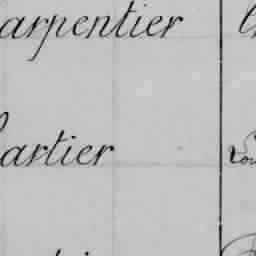 arpentier
artier